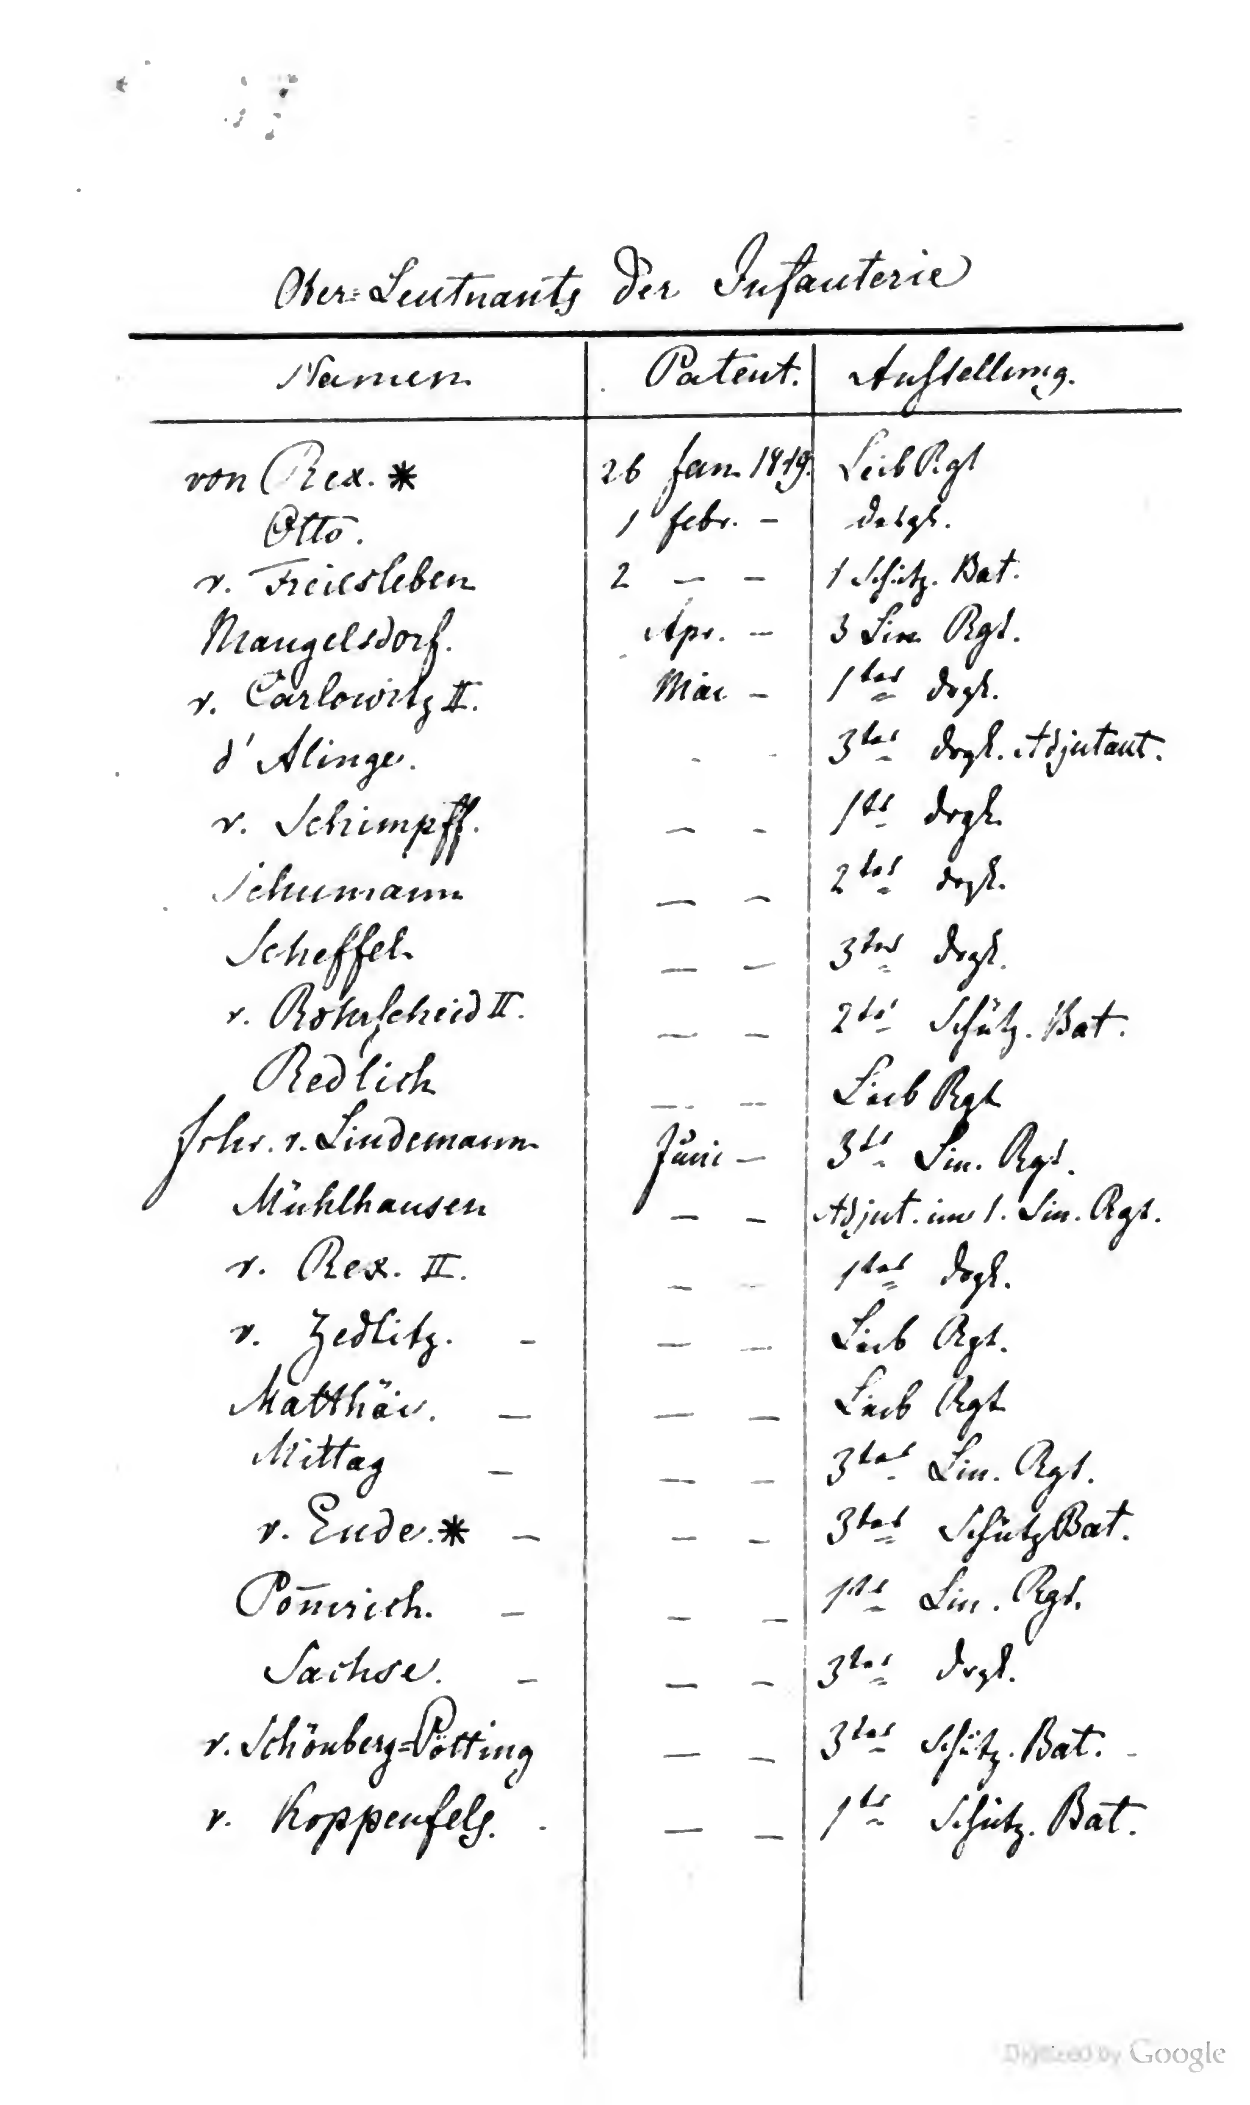 Ober-Leutnants der Infanterie
Namen. Patent. Anstellung.
von Rex. * 26 Jan. 1819. Leib Rgt
Otto. 1 febr. - desgl.
v. Freiesleben 2 - - 1 Schütz. Bat.
Mangelsdorf. Apr. - 3 Lin. Rgt.
v. Carlowitz II. Mai - 1tes desgl.
d'Alinge. - - 3tes desgl. Adjutant.
v. Schimpff. - - 1tes desgl.
Schumann - - 2tes desgl.
Scheffel. - - 3tes desgl.
v. Rohrscheid II. - - 2tes Schütz. Bat.
Redlich - - Leib Rgt
frhr. v. Lindemann Juni - 3tes Lin. Rgt.
Mühlhausen - - Adjut. im 1. Lin. Rgt.
v. Rex. II. - - 1tes desgl.
v. Zedlitz. - - - Leib Rgt.
Matthäi. - - - Leib Rgt
Mittag - - - 3tes Lin. Rgt.
v. Ende. * - - - 3tes Schütz Bat.
Pom̄rich. - - - 1tes Lin. Rgt.
Sachse. - - - 3tes desgl.
v. Schönberg=Pötting - - 3tes Schütz. Bat. -
v. Koppenfels. - - - 1tes Schütz. Bat.
Digitized by Google